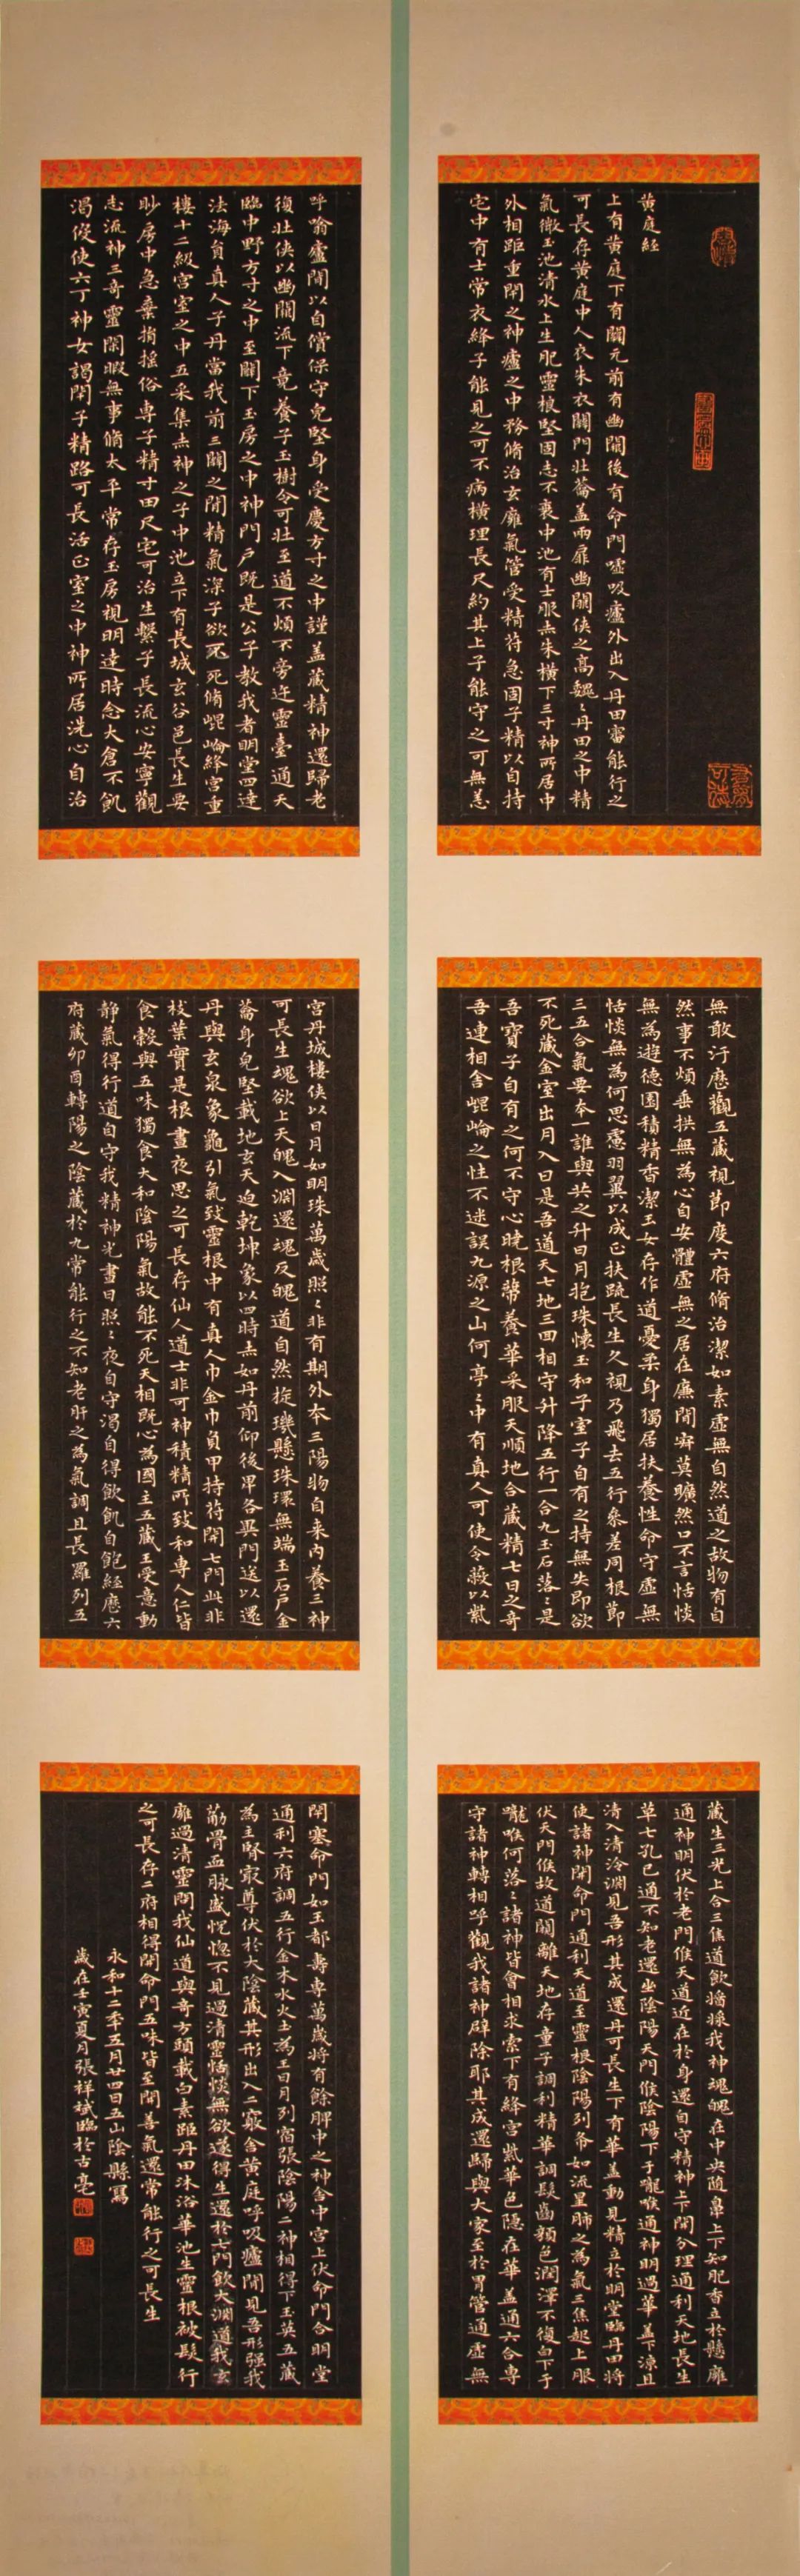 黃庭經
上有黃庭下有關元前有幽闕後有命門噓吸廬外出入丹田審能行之
可長存黃庭中人衣朱衣關門壯蘥蓋兩扉幽闕俠之高魏〻丹田之中精
氣微玉池清水上生肥靈根堅固志不衰中池有士服赤朱橫下三寸神所居中
外相距重閉之神廬之中務脩治玄膺氣管受精符急固子精以自持
宅中有士常衣絳子能見之可不病橫理長尺約其上子能守之可無恙
呼噏廬間以自償保守皃堅身受慶方寸之中謹蓋藏精神還歸老
復壯俠以幽闕流下竟養子玉樹令可壯至道不煩不旁迕靈臺通天
臨中野方寸之中至關下玉房之中神門戶既是公子教我者明堂四達
法海員真人子丹當我前三關之間精氣深子欲不死脩崐崘絳宮重
樓十二級宮室之中五采集赤神之子中池立下有長城玄谷邑長生要
眇房中急棄捐搖俗專子精寸田尺宅可治生繫子長流心安寧觀
志流神三奇靈閑暇無事脩太平常存玉房視明達時念大倉不飢
渴役使六丁神女謁閉子精路可長活正室之中神所居洗心自治
無敢汙歷觀五藏視節度六府脩治潔如素虛無自然道之故物有自
然事不煩垂拱無為心自安體虛無之居在廉間寂莫曠然口不言恬惔
無為遊德園積精香潔玉女存作道憂柔身獨居扶養性命守虛無
恬惔無為何思慮羽翼以成正扶疏長生久視乃飛去五行參差同根節
三五合氣要本一誰與共之升日月抱珠懷玉和子室子自有之持無失即欲
不死藏金室出月入日是吾道天七地三回相守升降五行一合九玉石落〻是
吾寶子自有之何不守心曉根蔕養華采服天順地合藏精七日之奇
吾連相舍崐崘之性不迷誤九源之山何亭〻中有真人可使令蔽以紫
宮丹城樓俠以日月如明珠萬歲照〻非有期外本三陽物自來內養三神
可長生魂欲上天魄入淵還魂反魄道自然琁璣懸珠環無端玉石戶金
蘥身皃堅載地玄天迫乾坤象以四時赤如丹前仰後卑各異門送以還
丹與玄泉象龜引氣致靈根中有真人巾金巾負甲持符開七門此非
枝葉實是根晝夜思之可長存仙人道士非可神積精所致和專人仁皆
食穀與五味獨食大和陰陽氣故能不死天相既心為國主五藏王受意動
靜氣得行道自守我精神光晝日照〻夜自守渴自得飲飢自飽經歷六
府藏卯酉轉陽之陰藏於九常能行之不知老肝之為氣調且長羅列五
藏生三光上合三焦道飲㺩漿我神魂魄在中央隨鼻上下知肥香立於懸膺
通神明伏於老門候天道近在於身還自守精神上下開分理通利天地長生
草七孔已通不知老還坐陰陽天門候陰陽下于嚨喉通神明過華蓋下涼且
清入清泠淵見吾形其成還丹可長生下有華蓋動見精立於明堂臨丹田將
使諸神開命門通利天道至靈根陰陽列布如流星肺之為氣三焦起上服
伏天門候故道闚離天地存童子調利精華調髮齒顏色潤澤不復白下于
嚨喉何落〻諸神皆會相求索下有絳宮紫華色隱在華蓋通六合專
守諸神轉相呼觀我諸神辟除耶其成還歸與大家至於胃管通虛無
閉塞命門如玉都壽專萬歲將有餘脾中之神舍中宮上伏命門合明堂
通利六府調五行金木水火土為王日月列宿張陰陽二神相得下玉英五藏
為主腎最尊伏於大陰藏其形出入二竅舍黃庭呼吸廬間見吾形強我
筋骨血脉盛恍惚不見過清靈恬惔無欲遂得生還於七門飲大淵道我玄
膺過清靈問我仙道與奇方頭載白素距丹田沐浴華池生靈根被髮行
之可長存二府相得開命門五味皆至開善氣還常能行之可長生
永和十二年五月廿四日五山陰縣寫
歲在壬寅夏月張祥斌臨於古亳